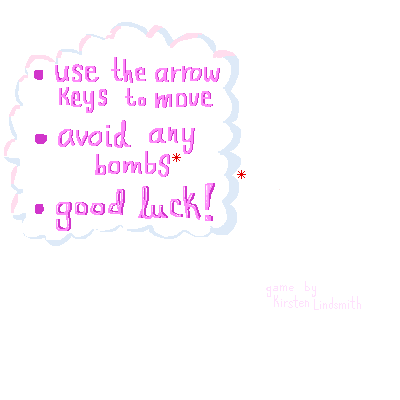 use the arrow
keys to move
avoid any
bombs*
good luck!
*
game by
Kirsten Lindsmith